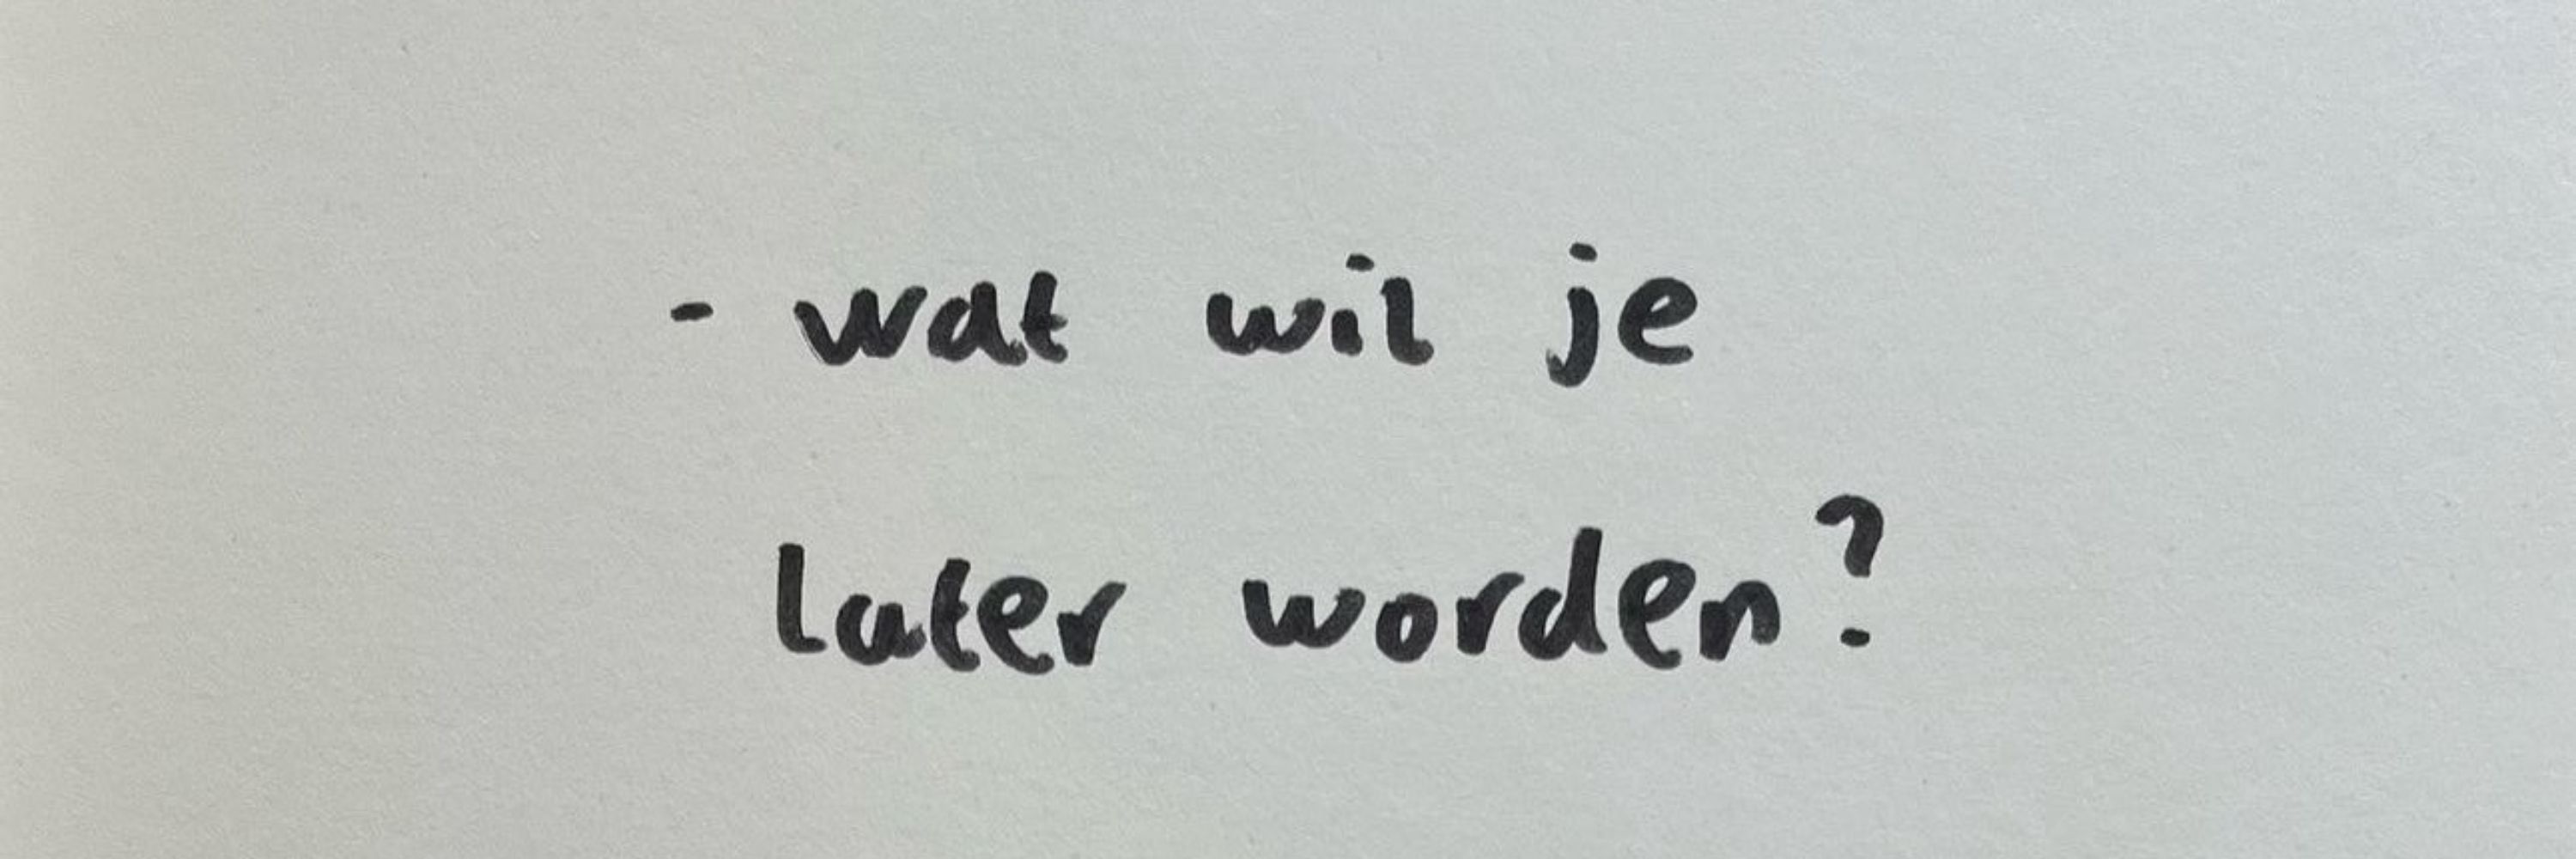 - wat wil je
later worden?